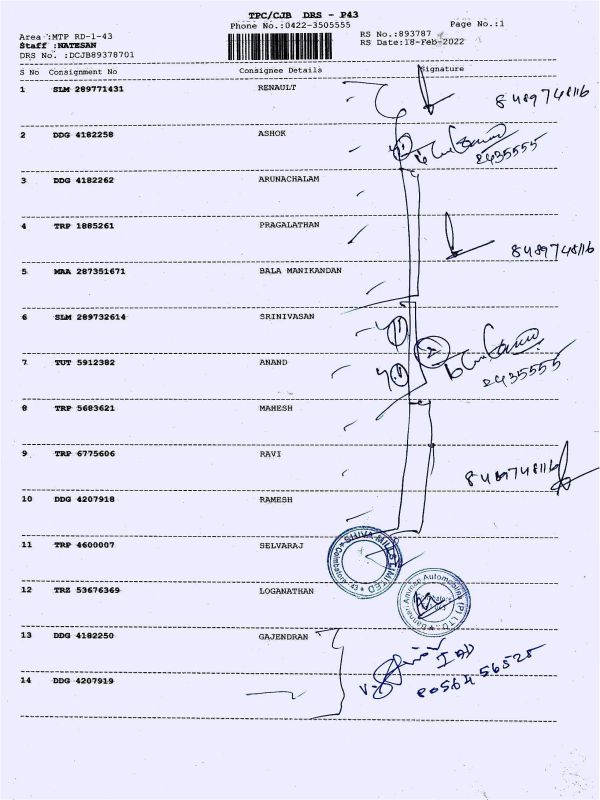 TPC/CJB DRS - P43
Phone No.:0422-3505555
Page No.:1
Area :MTP RD-1-43
RS No.:893787
Staff :NATESAN
RS Date:18-Feb-2022
DRS No. :DCJB89378701
S No Consignment No Consignee Details Signature
1 SLM 289771431 RENAULT
8489748116
2 DDG 4182258 ASHOK
2435555
3 DDG 4182262 ARUNACHALAM
4 TRP 1885261 PRAGALATHAN
8489748116
5 MAA 287351671 BALA MANIKANDAN
6 SLM 289732614 SRINIVASAN
7 TUT 5912382 ANAND
2435555
8 TRP 5683621 MAHESH
9 TRP 6775606 RAVI
8489748116
10 DDG 4207918 RAMESH
11 TRP 4600007 SELVARAJ
SHIVA MILLS LIMITED
Coimbatore 43
12 TRZ 53676369 LOGANATHAN
Bannari Amman Automobiles (P) LTD.
13 DDG 4182250 GAJENDRAN
8056456525
14 DDG 4207919